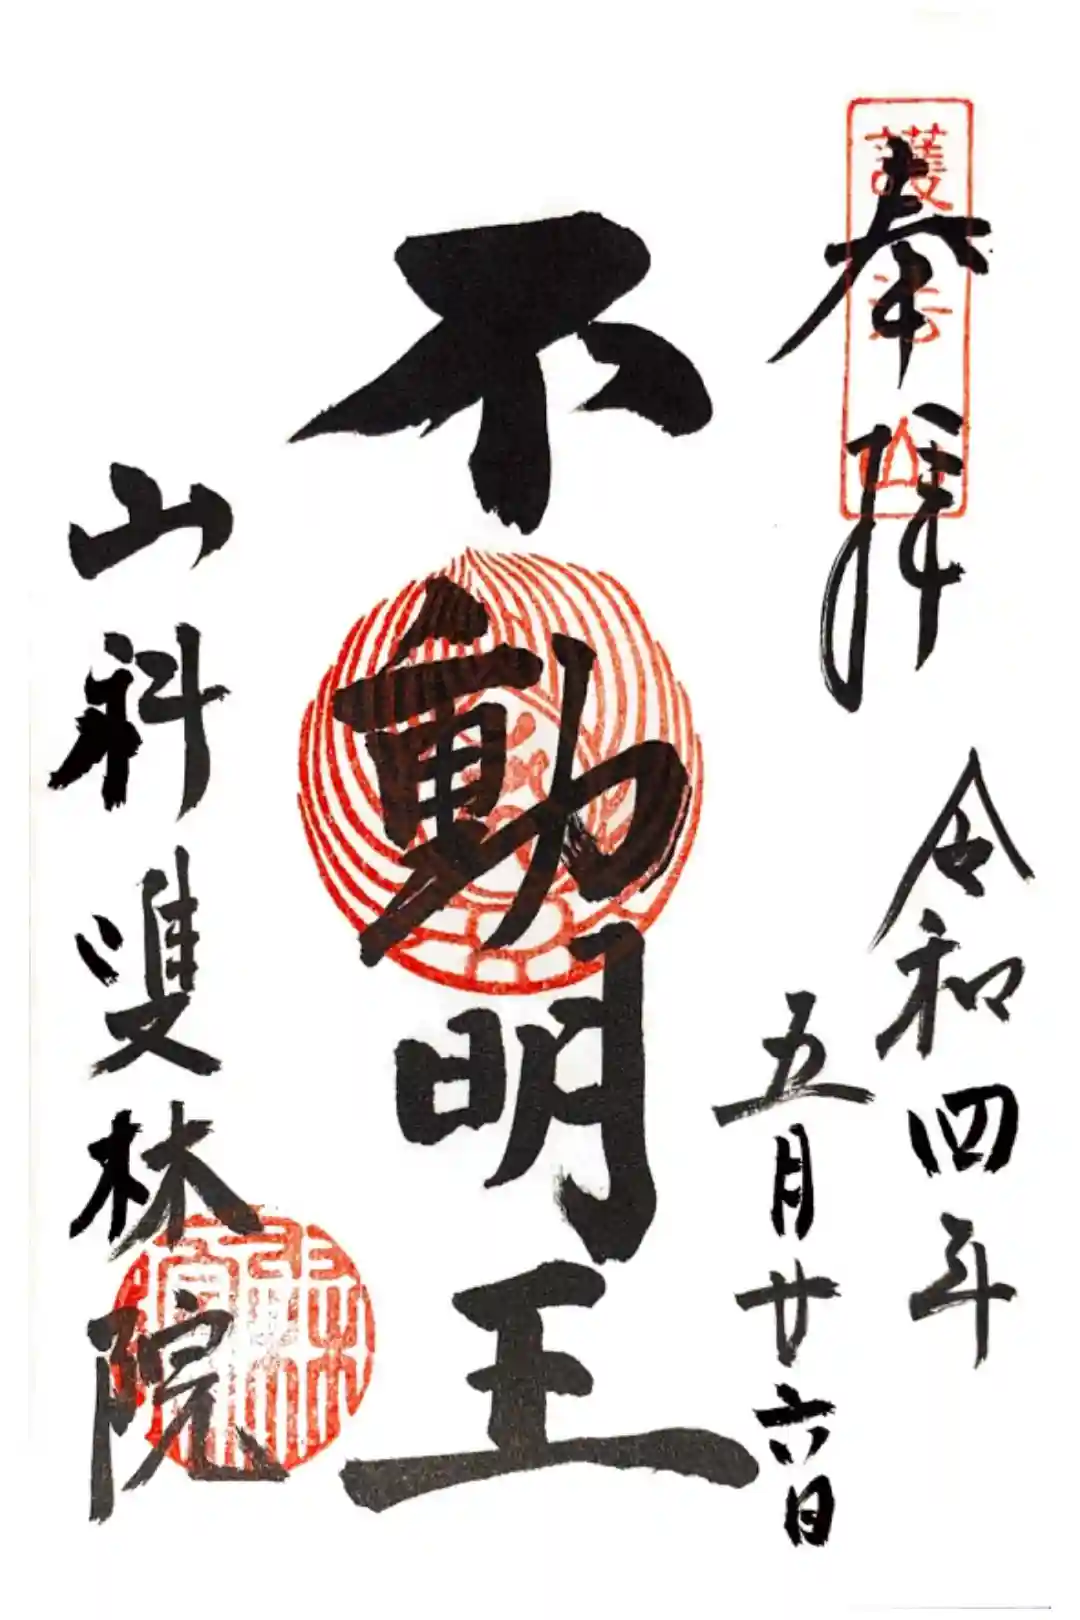 奉拝
護法山
令和四年
五月廿六日
不動明王
山科雙林院